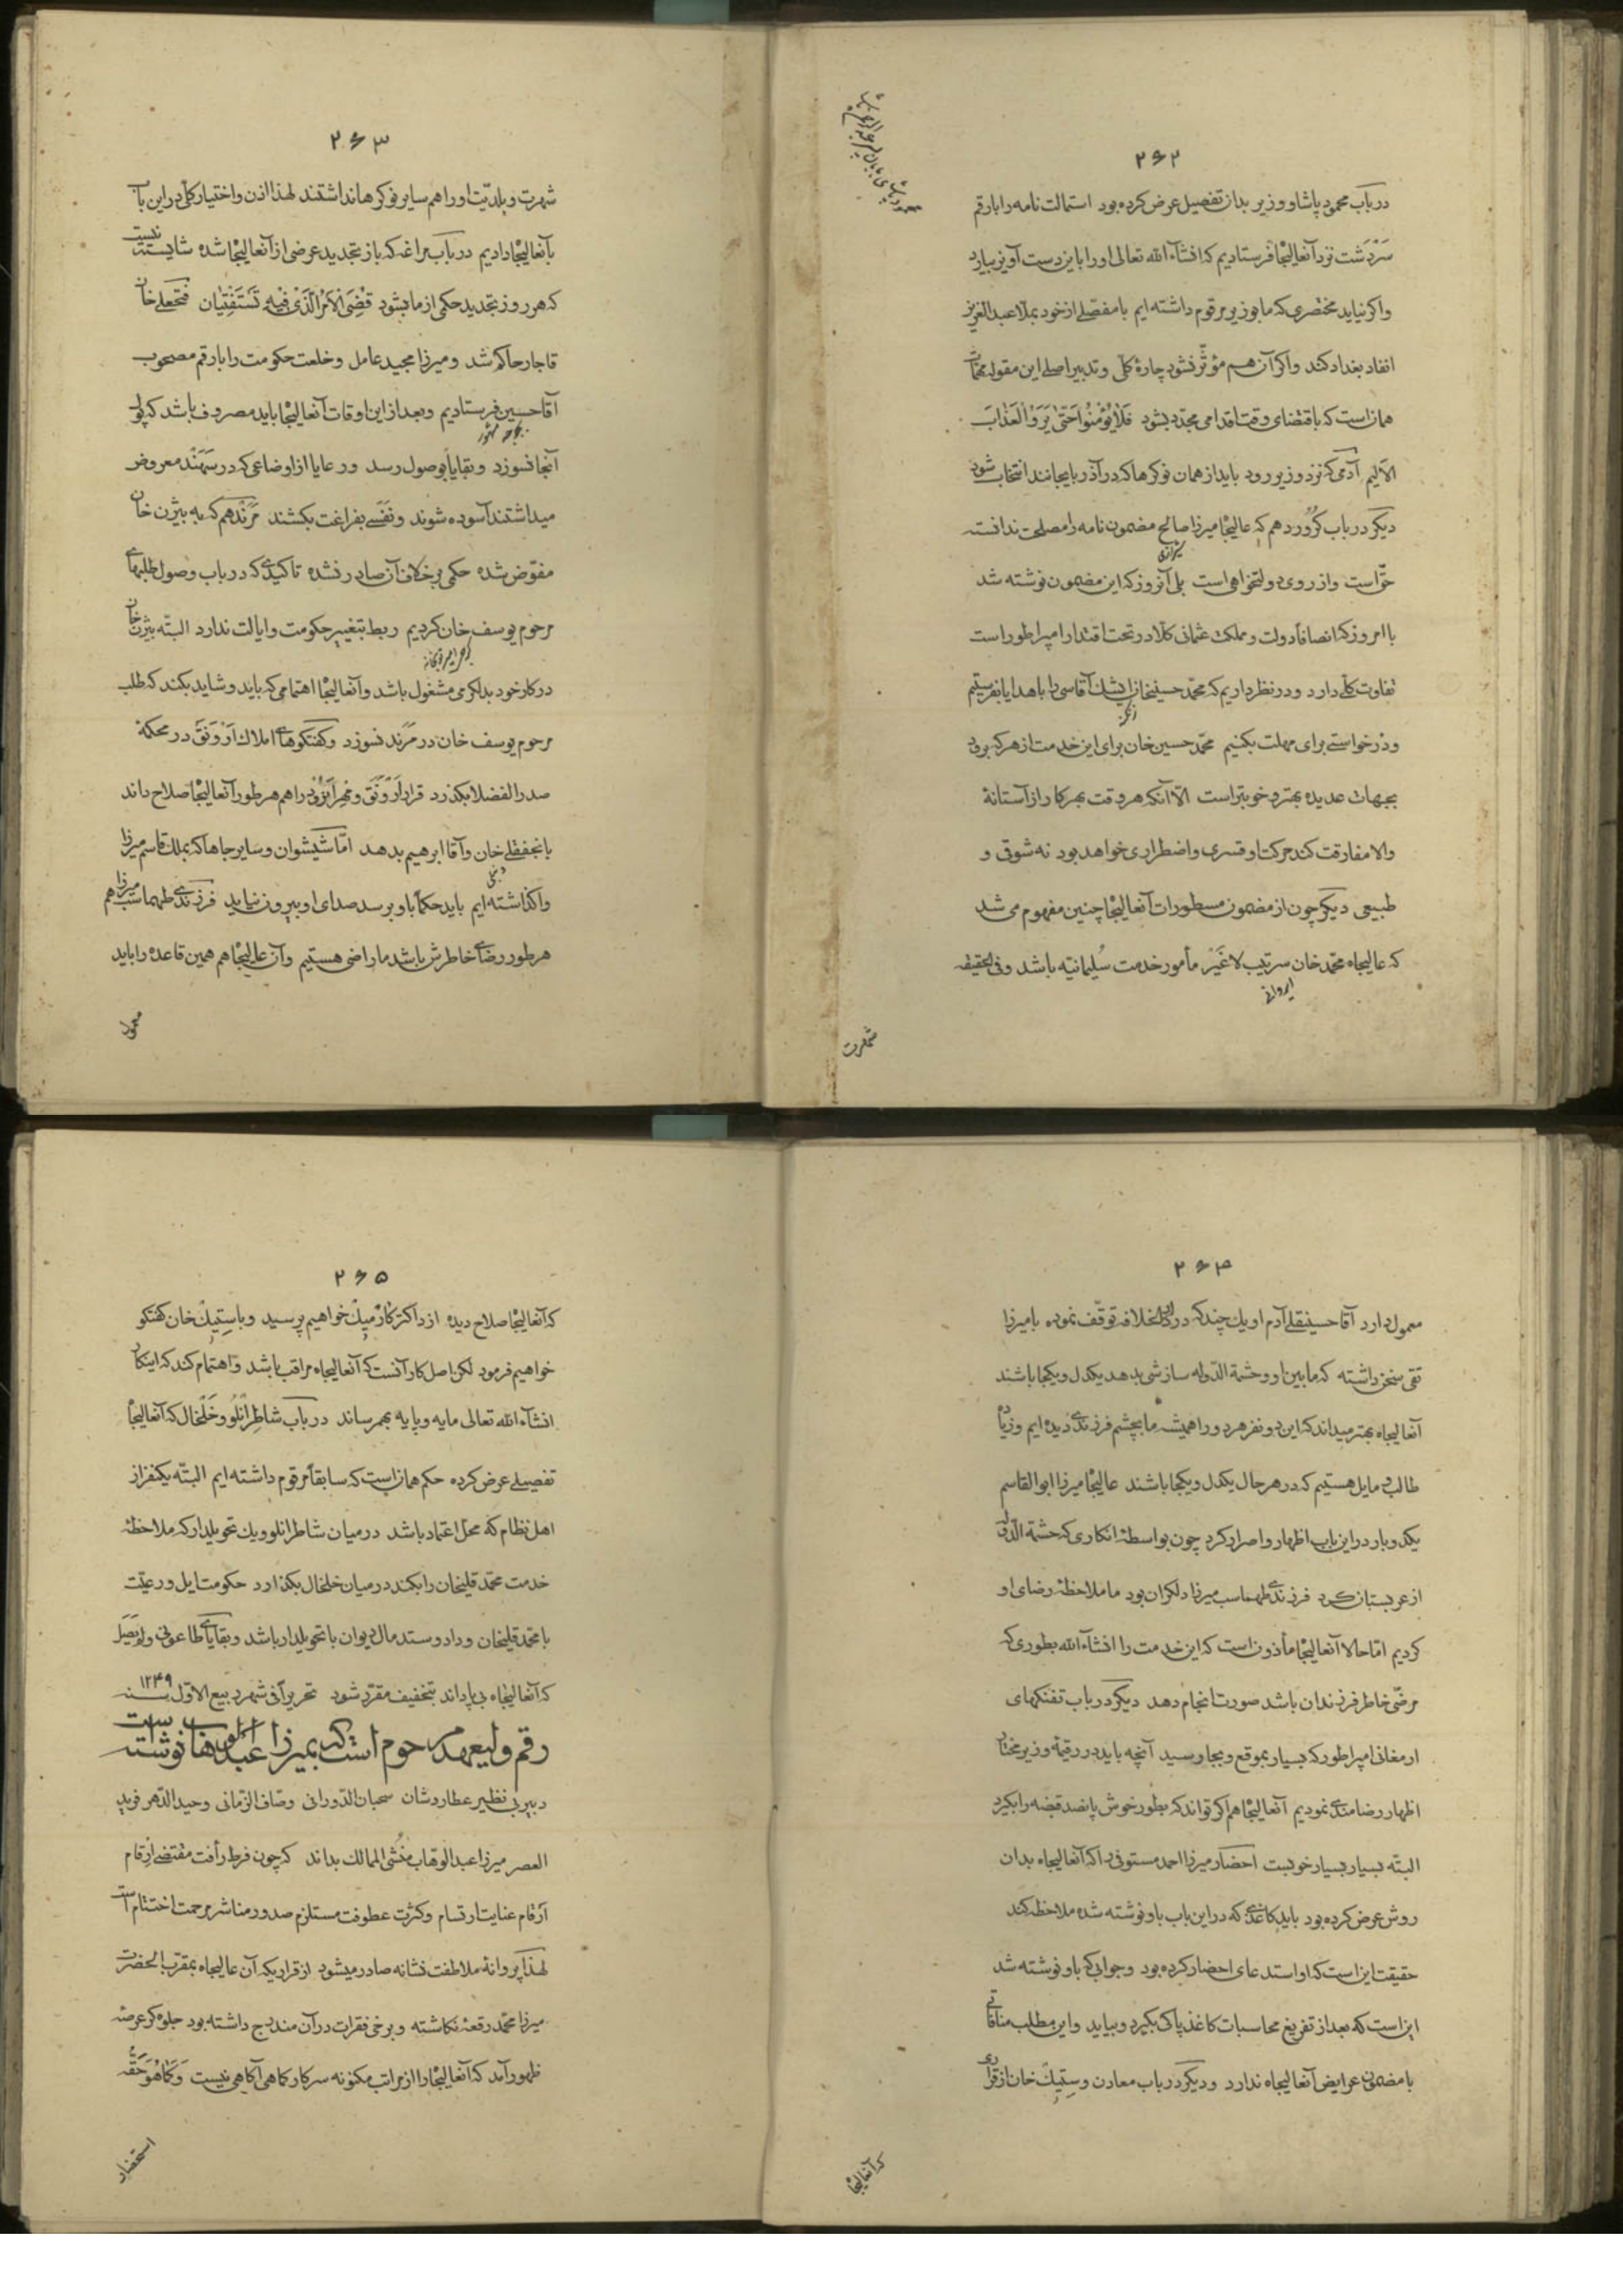 ۲۶۲
در باب محمود پاشا و وزیر بدان تفصیل عرض کرده بود استمالت نامه را با رقم
سَرْدَشت نزد آنعالیجاه فرستادیم که انشآء الله تعالی او را باین دست آویز بیارد
واکر نیاید مختصری که ما بوزیر مرقوم داشته ایم با مفصلی از خود بملا عبدالعزیز
انفاد بغداد کند واکر آن هم مؤثّر نشود چارهٔ کلّی و تدبیر اصلی این مقوله مهمّات
همان است که باقتضای وقت اقدامی مجدّد بشود فَلَا یُؤْمِنُوا حَتّیٰ یَرَوُا الْعَذٰابَ
الاَلیم آدمی که نزد وزیر رود باید از همان نوکرها که در آذربایجانند انتخاب شود
دیکر در باب کُرُور دهم که عالیجاه میرزا صالح مضمون نامه را مصلحت ندانسته
شیرازی
حقّ است و از روی دولتخواهی است بلی آنروز که این مضمون نوشته شد
با امروز که انصافاً دولت و مملکت عثمانی کلّا در تحت اقتدار امپراطور است
تفاوت کلّی دارد و در نظر داریم که محمّد حسینخان ایشک آقاسی را با هدایا بفرستیم
زنکنه
و درخواستی برای مهلت بکنیم محمّد حسین خان برای این خدمت از هر که برود
بجهات عدیده بهتر و خوبتر است الّا آنکه هر وقت بهر کار از آستانهٔ
والا مفارقت کند حرکت او قسری و اضطراری خواهد بود نه شوقی و
طبیعی دیکر چون از مضمون مسطورات آنعالیجاه چنین مفهوم می شد
که عالیجاه محمّد خان سرتیب لاغَیر مأمور خدمت سُلیمانیّه باشد وفی الحقیقه
ایروانی
شهرت
۲۶۳
شهرت و بلدیّت او را هم سایر نوکرها نداشتند لهذا اذن و اختیار کلّی در این باب
بآنعالیجاه دادیم در باب مراغه که باز بتجدید عرضی از آنعالیجاه شده شایسته نیست
که هر روز بتجدید حکمی از ما بشود قُضِیَ الْاَمْرُ الَّذی فیهِ تَسْتَفْتِیان فتحعلی خان
قاجار حاکم شد و میرزا مجید عامل و خلعت حکومت را با رقم مصحوب
آقا حسین فرستادیم وبعد از این اوقات آنعالیجاه باید مصروف باشد که پول
آنجا نسوزد و بقایا بوصول رسد و رعایا از اوضاعی که در سَهَنْد معروض
میداشتند آسوده شوند و نَفَسی بفراغت بکشند مَرَنْد هم که به بیژن خان
مفوّض شده حکمی بر خلاف آن صادر نشده تاکیدی که در باب وصول طلبهای
مرحوم یوسف خان کردیم ربط بتغییر حکومت وایالت ندارد البتّه بیژن خان
در کار خود بدلکرمی مشغول باشد و آنعالیجاه اهتمامی که باید و شاید بکند که طلب
مرحوم یوسف خان در مَرَند نسوزد و کفتکوهای املاک اَرْوَنَق در محکمهٔ
صدر الفضلا بکذرد قرار اَرْوَنَق و مِهرانرُود را هم هر طور آنعالیجاه صلاح داند
با نجفقلی خان و آقا ابرهیم بدهد امّا شیشوان و سایر جاها که بملک قاسم میرزا
واکذاشته ایم باید حکماً باو برسد صدای او بیرون نیاید فرزندی طهماسب میرزا هم
هر طور رضای خاطرش باشد ما راضی هستیم وآن عالیجاه هم همین قاعده را باید
معمول
۲۶۴
معمول دارد آقا حسینقلی آدم او یک چند که در دار الخلافه توقّف نموده با میرزا
تقی سخن داشته که مابین او و حشمة الدّوله سازشی بدهد یکدل و یکجا باشند
آنعالیجاه بهتر میداند که این دو نفر هر دو را همیشه ما بچشم فرزندی دیده ایم و زیاده
طالب و مایل هستیم که در هر حال یکدل و یکجا باشند عالیجاه میرزا ابوالقاسم
یکدو بار در این باب اظهار و اصرار کرد چون بواسطهٔ انکاری که حشمة الدّوله
از عربستان کرد فرزندی طهماسب میرزا دلکران بود ما ملاحظهٔ رضای او
کردیم امّا حالا آنعالیجاه مأذون است که این خدمت را انشآء الله بطوری که
مرضّی خاطر فرزندان باشد صورت انجام دهد دیکر در باب تفنکهای
ارمغانی امپراطور که بسیار بموقع و بجا رسید آنچه باید در رقیمهٔ وزیر مختار
اظهار رضامندی نمودیم آنعالیجاه هم اکر تواند که بطور خوش پانصد قبضه را بکیرد
البتّه بسیار بسیار خوبست احضار میرزا احمد مستوفی را که آنعالیجاه بدان
روش عرض کرده بود باید کاغذی که در این باب باو نوشته شده ملاحظه کند
حقیقت این است که او استدعای احضار کرده بود و جوابی که باو نوشته شد
این است که بعد از تفریغ محاسبات کاغذ پاک بکیرد و بیاید و این مطلب منافاتی
با مضمون عرایض آنعالیجاه ندارد و دیکر در باب معادن و سِتیک خان از قراری
که آنعالیجاه
۲۶۵
که آنعالیجاه صلاح دیده از داکتر کارْمیک خواهیم پرسید و با ستِیک خان کفتکو
خواهیم فرمود لکن اصل کار آنست که آنعالیجاه مراقب باشد و اهتمام کند که اینکار
انشآء الله تعالی مایه و پایه بهم رساند در باب شاطِرانْلُو و خَلْخال که آنعالیجاه
تفصیلی عرض کرده حکم همان است که سابقاً مرقوم داشته ایم البتّه یکنفر از
اهل نظام که محلّ اعتماد باشد در میان شاطرانلو و یک تحویلدار که ملاحظهٔ
خدمت محمّد قلیخان را بکند در میان خلخال بکذارد حکومت ایل و رعیّت
با محمّد قلیخان و داد و ستد مال دیوان با تحویلدار باشد و بقایای طاعونی و لم یَصِل
که آنعالیجاه بی پا داند بتخفیف مقرّر شود تحریراً فی شهر ربیع الاوّل سنه ۱۲۴۹
رقم ولیعهد مرحوم است که بمیرزا عبدالوهاب نوشته است
دبیر بی نظیر عطارد شان سحبان الدّورانی وصّاف الزّمانی وحید الدّهر فرید
العصر میرزا عبدالوهّاب منشی الممالک بداند که چون فرط رأفت مقتضی اِرقام
اَرقام عنایت ارتسام و کثرت عطوفت مستلزم صدور مناشیر مرحمت اختتام است
لهذا پروانهٔ ملاطفت نشانه صادر میشود از قراریکه آن عالیجاه بمقرّب الحضرت
میرزا محمّد رقعهٔ نکاشته و برخی فقرات در آن مندرج داشته بود جلوه کر عرصهٔ
ظهور آمد که آنعالیجاه را از مراتب مکنونه سرکار کماهی آکاهی نیست وَ کَمٰا هُوَ حَقُّه
استحضار